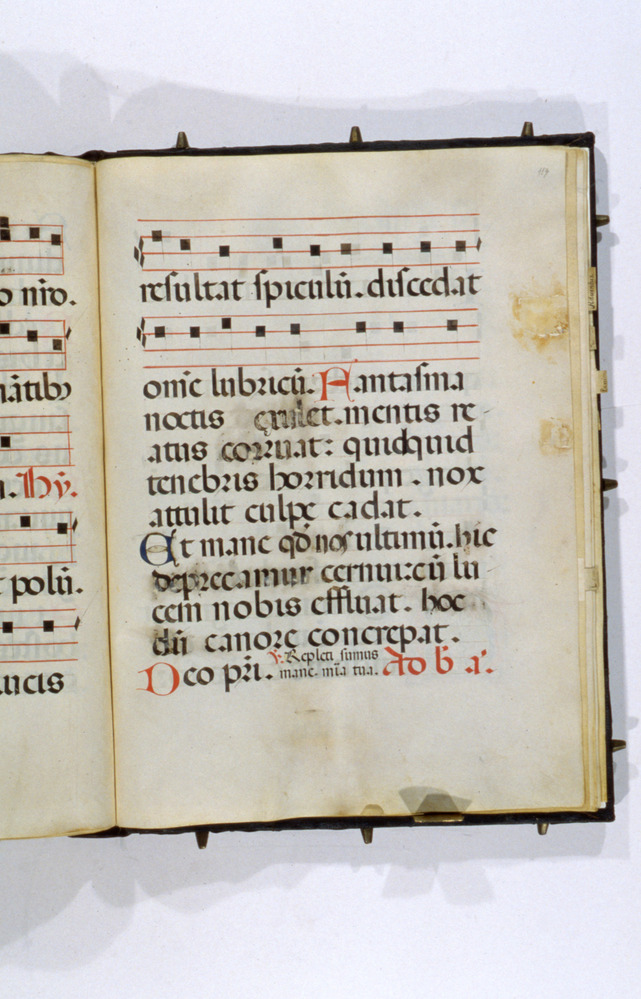 o nr̄o.
nātibꝯ
hȳ.
polū.
119
resultat spiculū. discedat
om̄e lubricū. Fantasma
noctis exulet. mentis re
atus corruat: quidquid
tenebris horridum. nox
attulit culpe cadat.
Et mane qđ nos ultimū. hic
deprecamur cernui: cū lu
cem nobis effluat. hoc
dū canore concrepat.
Deo pr̄i. ℣. Repleti sumus
mane. mīa tua. Ad b̄ a.